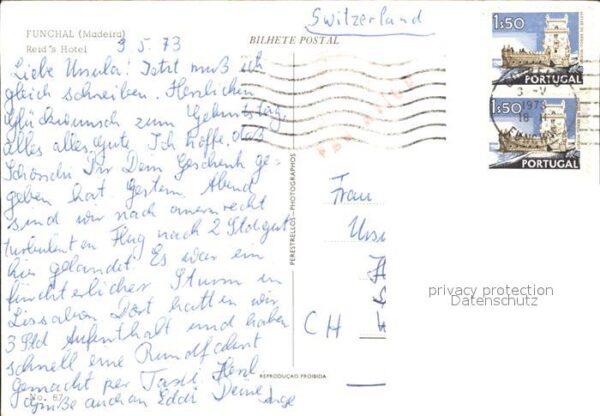 FUNCHAL (Madeira)
Reid's Hotel
3.5.73
BILHETE POSTAL
Switzerland
Liebe Ursula! Jetzt muß ich
gleich schreiben. Herzlichen
Glückwunsch zum Geburtstag,
alles alles Gute. Ich hoffe, daß
Dir Dein Geschenk ge-
geben hat. Gestern Abend
sind wir nach einem recht
turbulenten Flug nach 2 Std gut
hier gelandet. Es war ein
fürchterlicher Sturm in
Lissabon. Dort hatten wir
3 Std Aufenthalt und haben
schnell eine Rundfahrt
gemacht per Taxi. Herzl
Grüße auch an Eddi Deine
No. 67
PERESTRELLOS - PHOTOGRAPHOS
REPRODUÇÃO PROIBIDA
Frau
Ursu
CH
1$50
PORTUGAL
3 - V
1973
18 H
1$50
PORTUGAL
privacy protection
Datenschutz